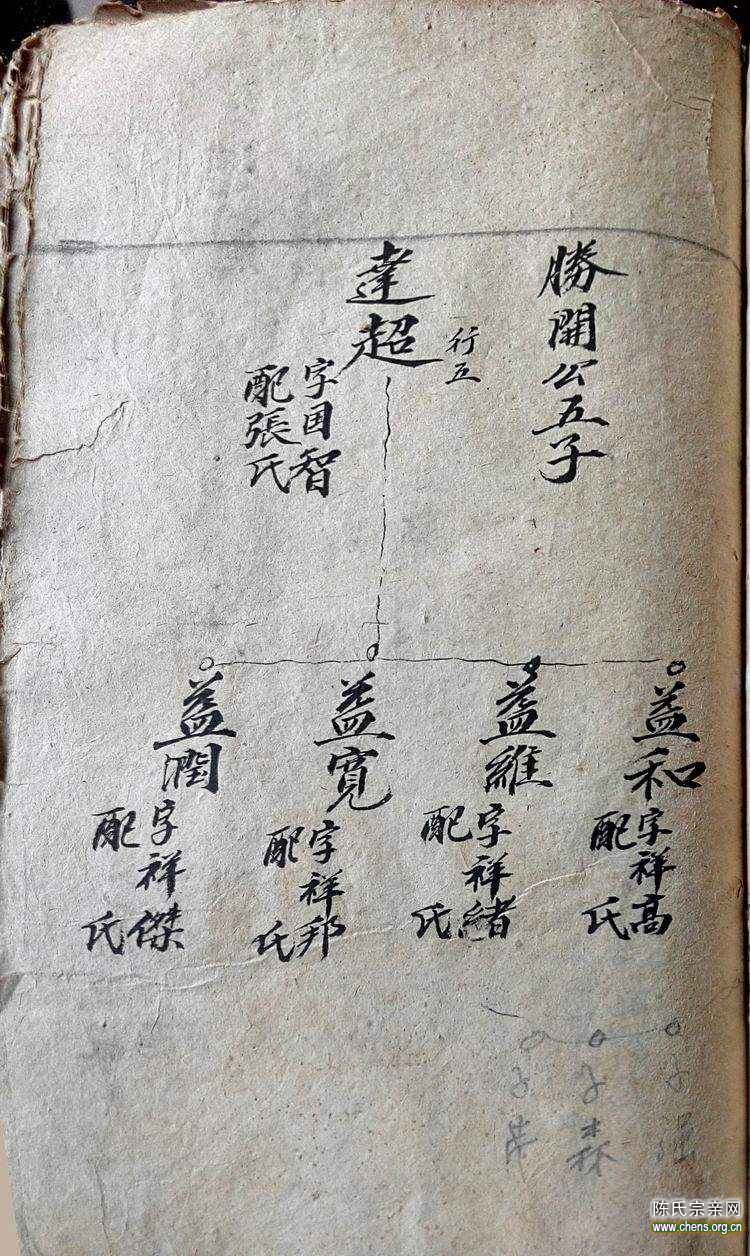 勝開公五子
達超
行五
字国智
配張氏
益和
字祥高
配 氏
益維
字祥緒
配 氏
益寬
字祥邦
配 氏
益潤
字祥傑
配 氏
子
子森
子
陈氏宗亲网
www.chens.org.cn